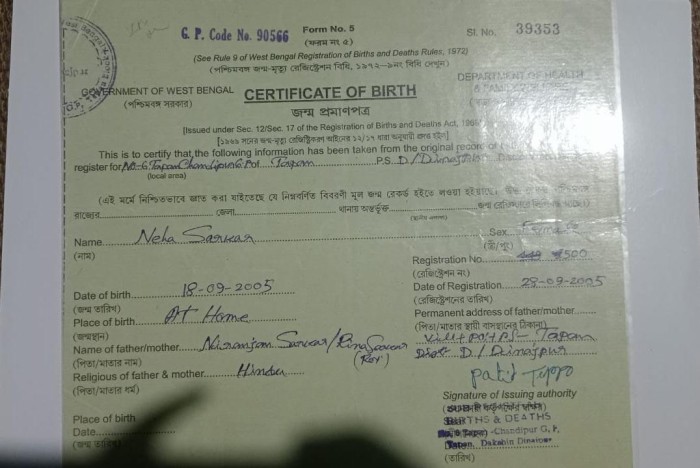 G. P. Code No. 90566
Form No. 5
Sl. No. 39353
(ফরম নং ৫)
(See Rule 9 of West Bengal Registration of Births and Deaths Rules, 1972)
(পশ্চিমবঙ্গ জন্ম-মৃত্যু রেজিস্ট্রেশন বিধি, ১৯৭২-৯নং বিধি দেখুন)
GOVERNMENT OF WEST BENGAL
DEPARTMENT OF HEALTH
(পশ্চিমবঙ্গ সরকার)
CERTIFICATE OF BIRTH
জন্ম প্রমাণপত্র
[Issued under Sec. 12/Sec. 17 of the Registration of Births and Deaths Act, 1969]
This is to certify that the following information has been taken from the original record of
register for No-6 Tapan Chandipur G.P of Tapan P.S. D/Dinajpur
(local area)
(এই মর্মে নিশ্চিতভাবে জ্ঞাত করা যাইতেছে যে নিম্নবর্ণিত বিবরণী মূল জন্ম রেকর্ড হইতে লওয়া হইয়াছে
রাজ্যের জেলা থানায় অন্তর্ভুক্ত
Name Neha Sarkar Sex Female
(নাম)
Registration No. 449 500
(রেজিস্ট্রেশন নং)
Date of birth 18-09-2005
Date of Registration 28-09-2005
(জন্ম তারিখ)
(রেজিস্ট্রেশনের তারিখ)
Place of birth At Home
Permanent address of father/mother
(জন্মস্থান)
(পিতা/মাতার স্থায়ী বাসস্থানের ঠিকানা)
Vill+PO+PS- Tapan
Name of father/mother Niranjan Sarkar/Rina Sarkar
Dist D/Dinajpur
(পিতা/মাতার নাম)
Religious of father & mother Hindu
(পিতা/মাতার ধর্ম)
Signature of Issuing authority
Place of birth
BIRTHS & DEATHS
Date
Chandipur G. P.
(জন্ম তারিখ)
Tapan, Dakshin Dinajpur
(তারিখ)